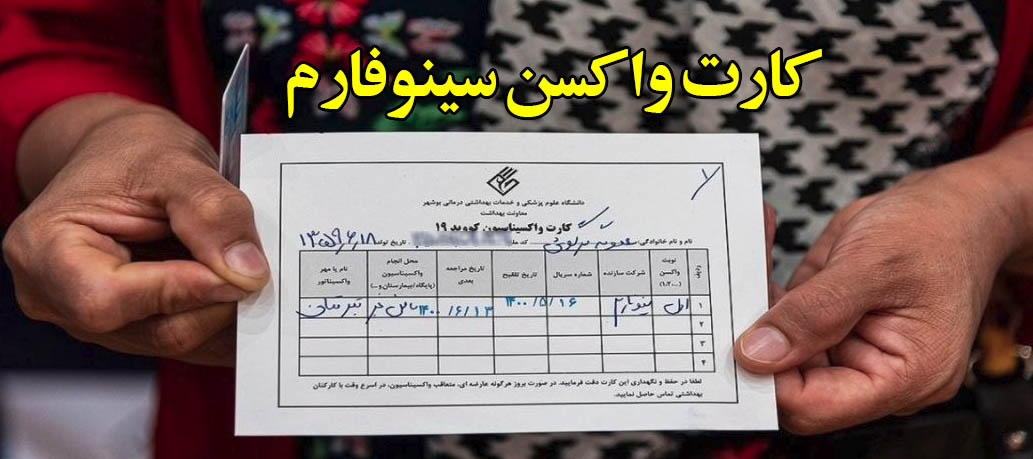 کارت واکسن سینوفارم
دانشگاه علوم پزشکی و خدمات بهداشتی درمانی بوشهر
معاونت بهداشت
کارت واکسیناسیون کووید ۱۹
نام و نام خانوادگی: کد ملی تاریخ تولد ۱۳۵۹,۶,۱۸
ردیف نوبت واکسن (۱،۲،...) شرکت سازنده شماره سریال تاریخ تلقیح تاریخ مراجعه بعدی محل انجام واکسیناسیون (پایگاه/بیمارستان و...) نام یا مهر واکسیناتور
۱ اول سینوفارم ۱۴۰۰/۵/۱۶ ۱۴۰۰/۶/۱۳
۲
۳
۴
لطفا در حفظ و نگهداری این کارت دقت فرمایید. در صورت بروز هرگونه عارضه ای، متعاقب واکسیناسیون، در اسرع وقت با کارکنان
بهداشتی تماس حاصل نمایید.